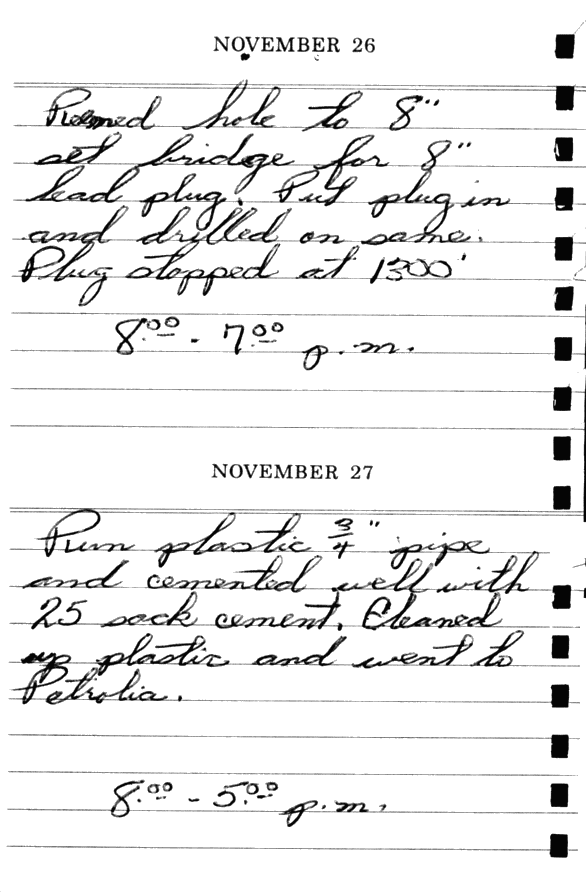 NOVEMBER 26
Reemed hole to 8"
set bridge for 8"
lead plug. Put plug in
and drilled on same.
Plug stopped at 1300'
8:00 - 7:00 p.m.
NOVEMBER 27
Run plastic 3/4" pipe
and cemented well with
25 sack cement. Cleaned
up plastic and went to
Petrolia.
8:00 - 5:00 p.m.